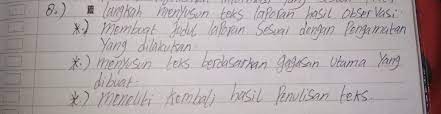 8.) langkah menyusun teks laporan hasil observasi.
*.) membuat judul laporan sesuai dengan Pengamatan
Yang dilakukan.
*.) menyusun teks berdasarkan gagasan utama Yang
dibuat.
*.) meneliti kembali hasil Penulisan teks.